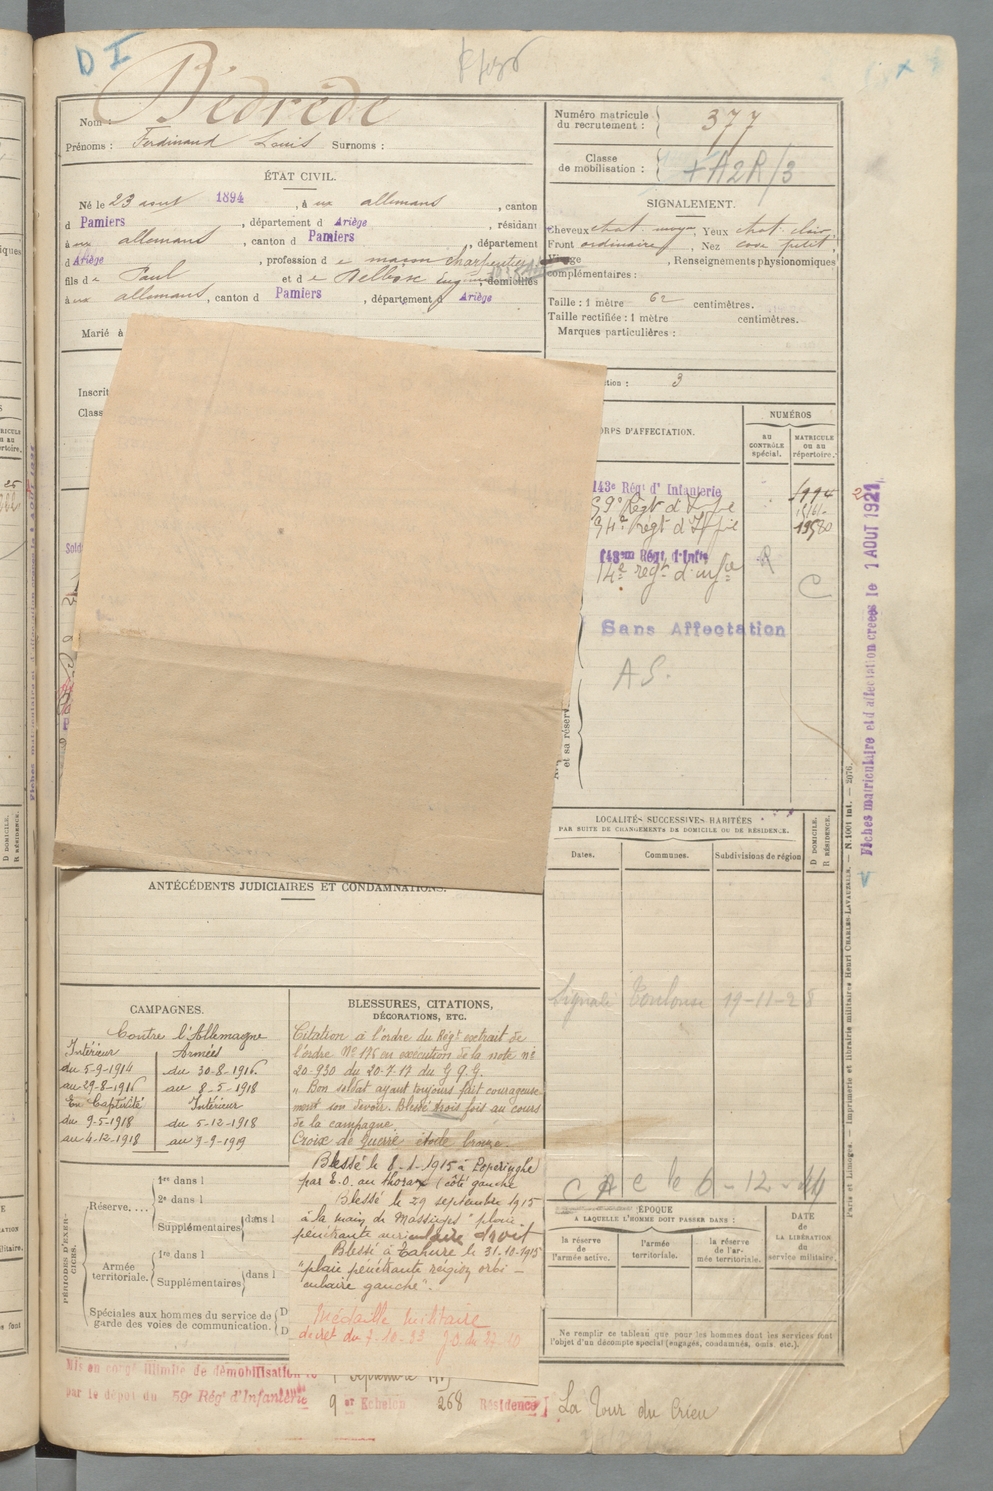 D I
Bédrède
Nom :
Prénoms : Ferdinand Louis Surnoms :
ÉTAT CIVIL.
Né le 23 aout 1894, à aux allemans, canton
d Pamiers, département d Ariège, résidant
à aux allemans, canton d Pamiers, département
d Ariège, profession d e maçon charpentier
fils de Paul et de domiciliés
à aux allemans, canton d Pamiers, département Ariège
Marié à
Inscrit
Class
Numéro matricule
du recrutement : 377
Classe
de mobilisation : + A2R/3
SIGNALEMENT.
Cheveux chat. moyen, Yeux chat. clair,
Front ordinaire, Nez cave petit,
Visage, Renseignements physionomiques
complémentaires :
Taille : 1 mètre 62 centimètres.
Taille rectifiée : 1 mètre centimètres.
Marques particulières :
ction : 3
ORPS D'AFFECTATION.
NUMÉROS
AU
CONTRÔLE
spécial.
MATRICULE
OU AU
répertoire.
143e Régt d'Infanterie
59e Régt d'Inf ie
94e Régt d'Inf ie
143em Régt d'Infie
14e regt d'infie
R
C
Sans Affectation
A S.
et sa réserv
LOCALITÉS SUCCESSIVES HABITÉES
PAR SUITE DE CHANGEMENTS DE DOMICILE OU DE RÉSIDENCE.
Dates.
Communes.
Subdivisions de région
D DOMICILE.
R RÉSIDENCE.
Signalé Toulouse 19-11-28
le 6-12-44
Fiches matriculaire et d'affectation créées le 1 AOUT 1921
ANTÉCÉDENTS JUDICIAIRES ET CONDAMNATIONS.
CAMPAGNES.
Contre l'Allemagne
Intérieur
du 5-9-1914
au 29-8-1916
En Captivité
du 9-5-1918
au 4-12-1918
Armées
du 30-8-1916
au 8-5-1918
Intérieur
du 5-12-1918
au 9-9-1919
BLESSURES, CITATIONS,
DÉCORATIONS, ETC.
Citation à l'ordre du Régt extrait de
l'ordre No 176 en exécution de la note no
20-930 du 20-7-17 du G Q G.
"Bon soldat ayant toujours fait courageuse
ment son devoir. Blessé trois fois au cours
de la campagne.
Croix de Guerre étoile bronze.
Blessé le 8-1-1915 à Poperinghe
par E.O. au thorax (côté gauche
Blessé le 29 septembre 1915
à la main de Massiges "plaie
pénétrante auriculaire droit
Blessé à Tahure le 31-10-1915
"plaie pénétrante région orbi-
culaire gauche".
Médaille Militaire
décret du 7-10-33
PÉRIODES D'EXER-
CICES.
Réserve....
1re dans l
2e dans l
Supplémentaires dans l
Armée
territoriale.
1re dans l
Supplémentaires dans l
Spéciales aux hommes du service de
garde des voies de communication.
D
D
ÉPOQUE
A LAQUELLE L'HOMME DOIT PASSER DANS :
la réserve
de
l'armée active.
l'armée
territoriale.
la réserve
de l'ar-
mée territoriale.
DATE
de
LA LIBÉRATION
du
service militaire.
Ne remplir ce tableau que pour les hommes dont les services font
l'objet d'un décompte spécial (engagés, condamnés, omis, etc.).
Mis en congé illimité de démobilisation le
par le dépôt du 59e Régt d'Infanterie
9 er Echelon 268 Résidence La Tour du Crieu
Paris et Limoges. — Imprimerie et librairie militaires Henri CHARLES-LAVAUZELLE. — N. 1001 int. — 2076.